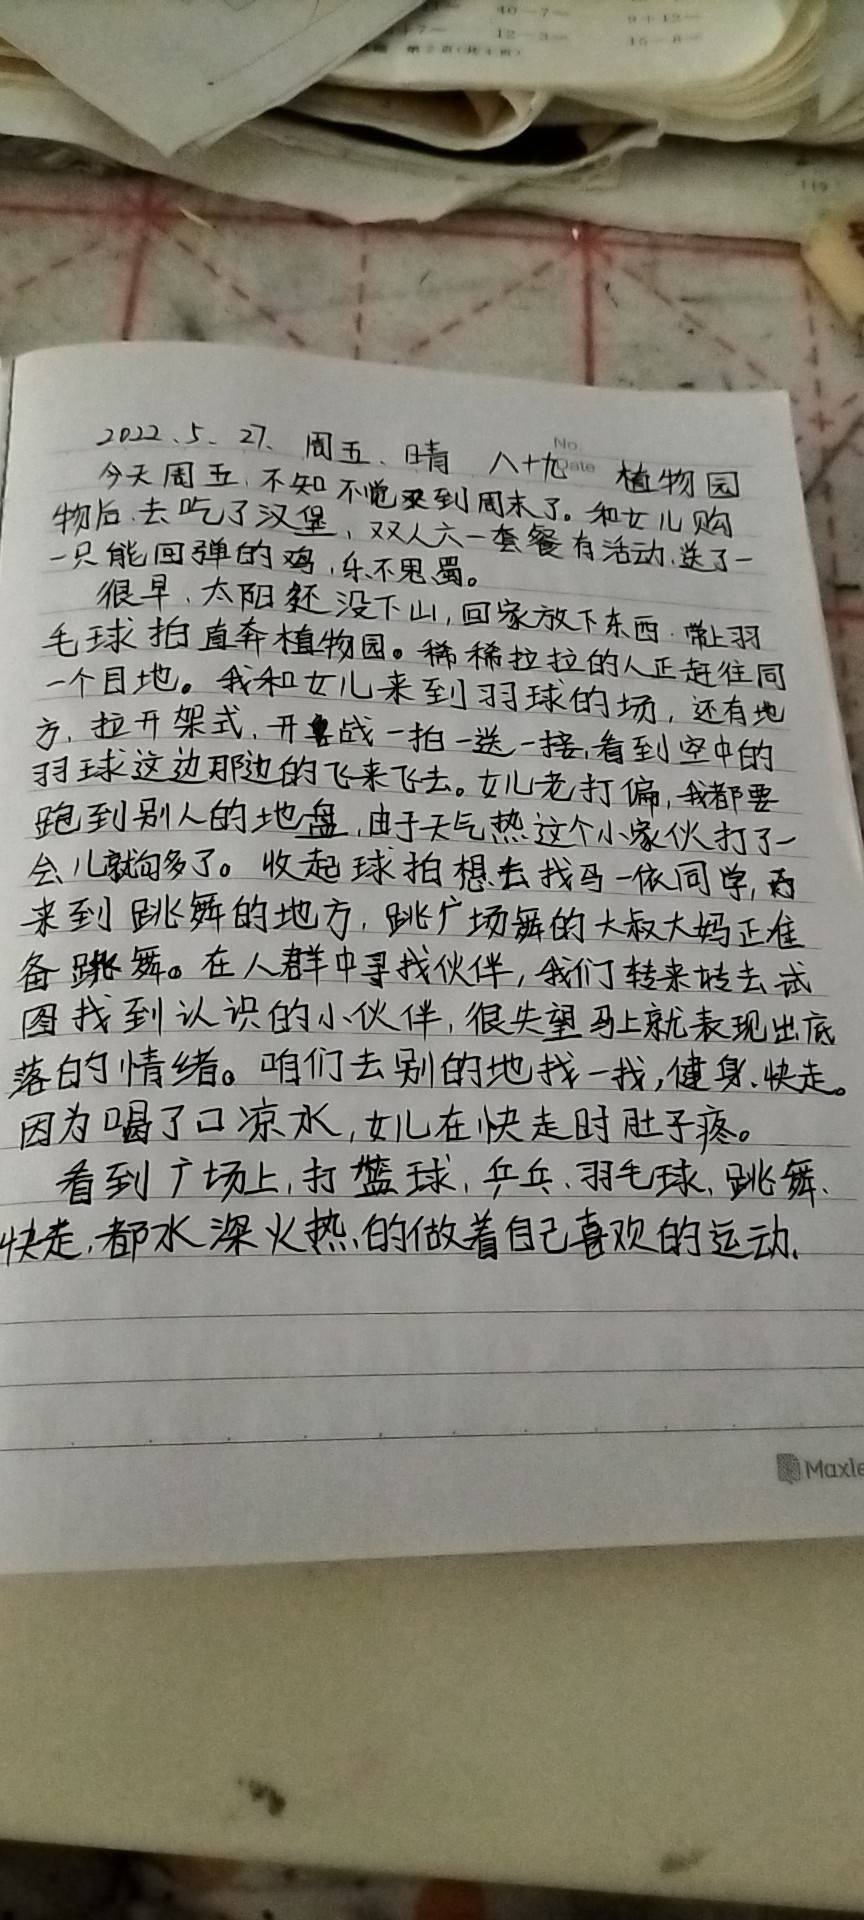 40-7=
9+12=
12-3=
15-8=
第2页(共4页)
119
No.
Date
2022、5、27、周五、晴 八十九 植物园
今天周五,不知不觉又到周末了。和女儿购
物后,去吃了汉堡,双人六一套餐有活动,送了一
一只能回弹的鸡,乐不思蜀。
很早,太阳还没下山,回家放下东西,带上羽
毛球拍直奔植物园。稀稀拉拉的人正赶往同
一个目地。我和女儿来到羽球的场,还有地
方,拉开架式,开战一拍一送一接,看到空中的
羽球这边那边的飞来飞去。女儿老打偏,我都要
跑到别人的地盘,由于天气热这个小家伙打了一
会儿就句多了。收起球拍想去找马一依同学,
来到跳舞的地方,跳广场舞的大叔大妈正准
备跳舞。在人群中寻找伙伴,我们转来转去试
图找到认识的小伙伴,很失望马上就表现出底
落的情绪。咱们去别的地找一找,健身、快走。
因为喝了口凉水,女儿在快走时肚子疼。
看到广场上,打篮球,乒乓、羽毛球、跳舞、
快走,都水深火热的做着自己喜欢的运动.
Maxle